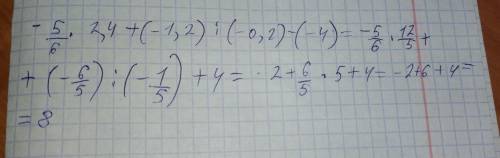 -5/6 · 2,4 + (-1,2) : (-0,2) - (-4) = -5/6 · 12/5 +
+ (-6/5) : (-1/5) + 4 = -2 + 6/5 · 5 + 4 = -2+6+4=
= 8